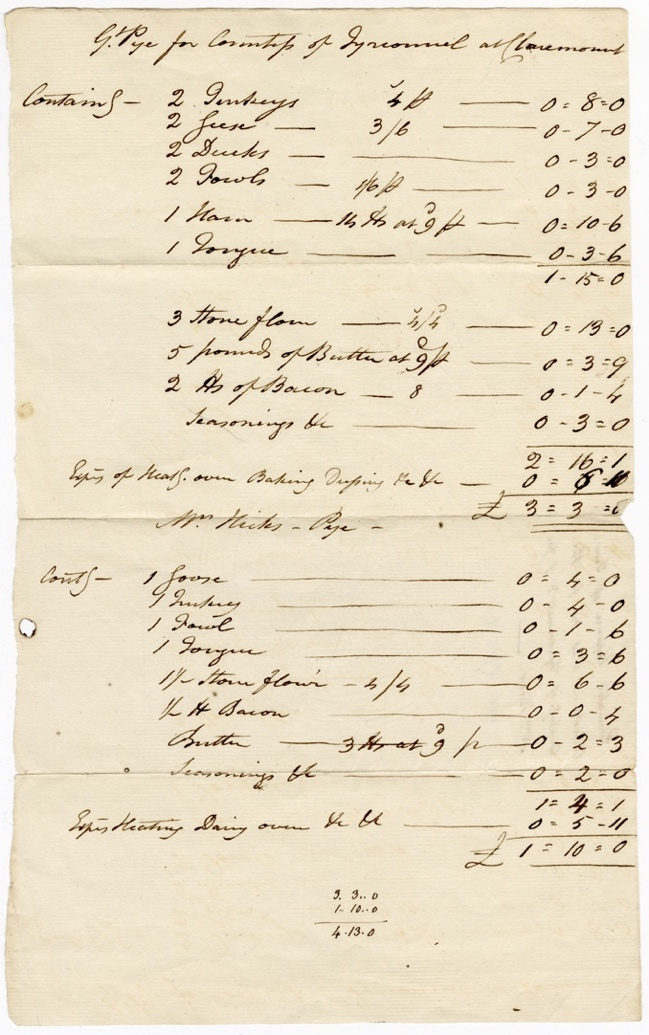 Gt. Pye for Countess of Tyrconnel at Claremount
Containg - 2 Turkeys 4/ p —— 0=8=0
2 Geese — 3/6 —— 0-7-0
2 Ducks — —— 0-3=0
2 Fowls — 1/6 p —— 0-3-0
1 Ham — 14 lbs at 9d p — 0=10-6
1 Tongue — — —— 0-3-6
1-15=0
3 Stone flour —— 4/4 —— 0=13=0
5 pounds of Butter at 9d p —— 0=3=9
2 lbs of Bacon — 8 —— 0-1-4
Seasonings &c —— 0-3=0
2=16=1
Exps of Heatg. oven Baking &c &c — 0=6=10
£ 3=3=0
Mrs Hicks - Pye -
Contg - 1 Goose —— 0=4=0
1 Turkey —— 0-4-0
1 Fowl —— 0-1-6
1 Tongue —— 0=3=6
1½ Stone flour - 4/4 —— 0=6-6
½ lb Bacon —— 0-0-4
Butter —— 3 lbs at 9d p —— 0-2=3
Seasonings &c —— 0=2=0
1=4=1
Exps Heating Dairy oven &c &c —— 0=5-11
£ 1=10=0
3. 3.. 0
1- 10.. 0
4.13.0